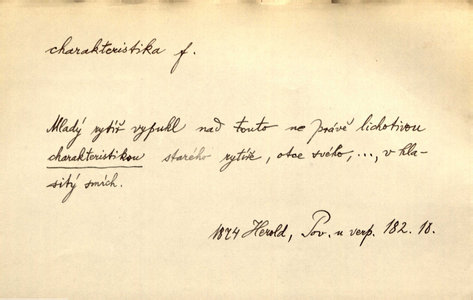 charakteristika f.
Mladý rytíř vypukl nad touto ne právě lichotivou
charakteristikou starého rytíře, otce svého, ..., v hla-
sitý smích.
1874 Herold, Pov. u verp. 182. 18.